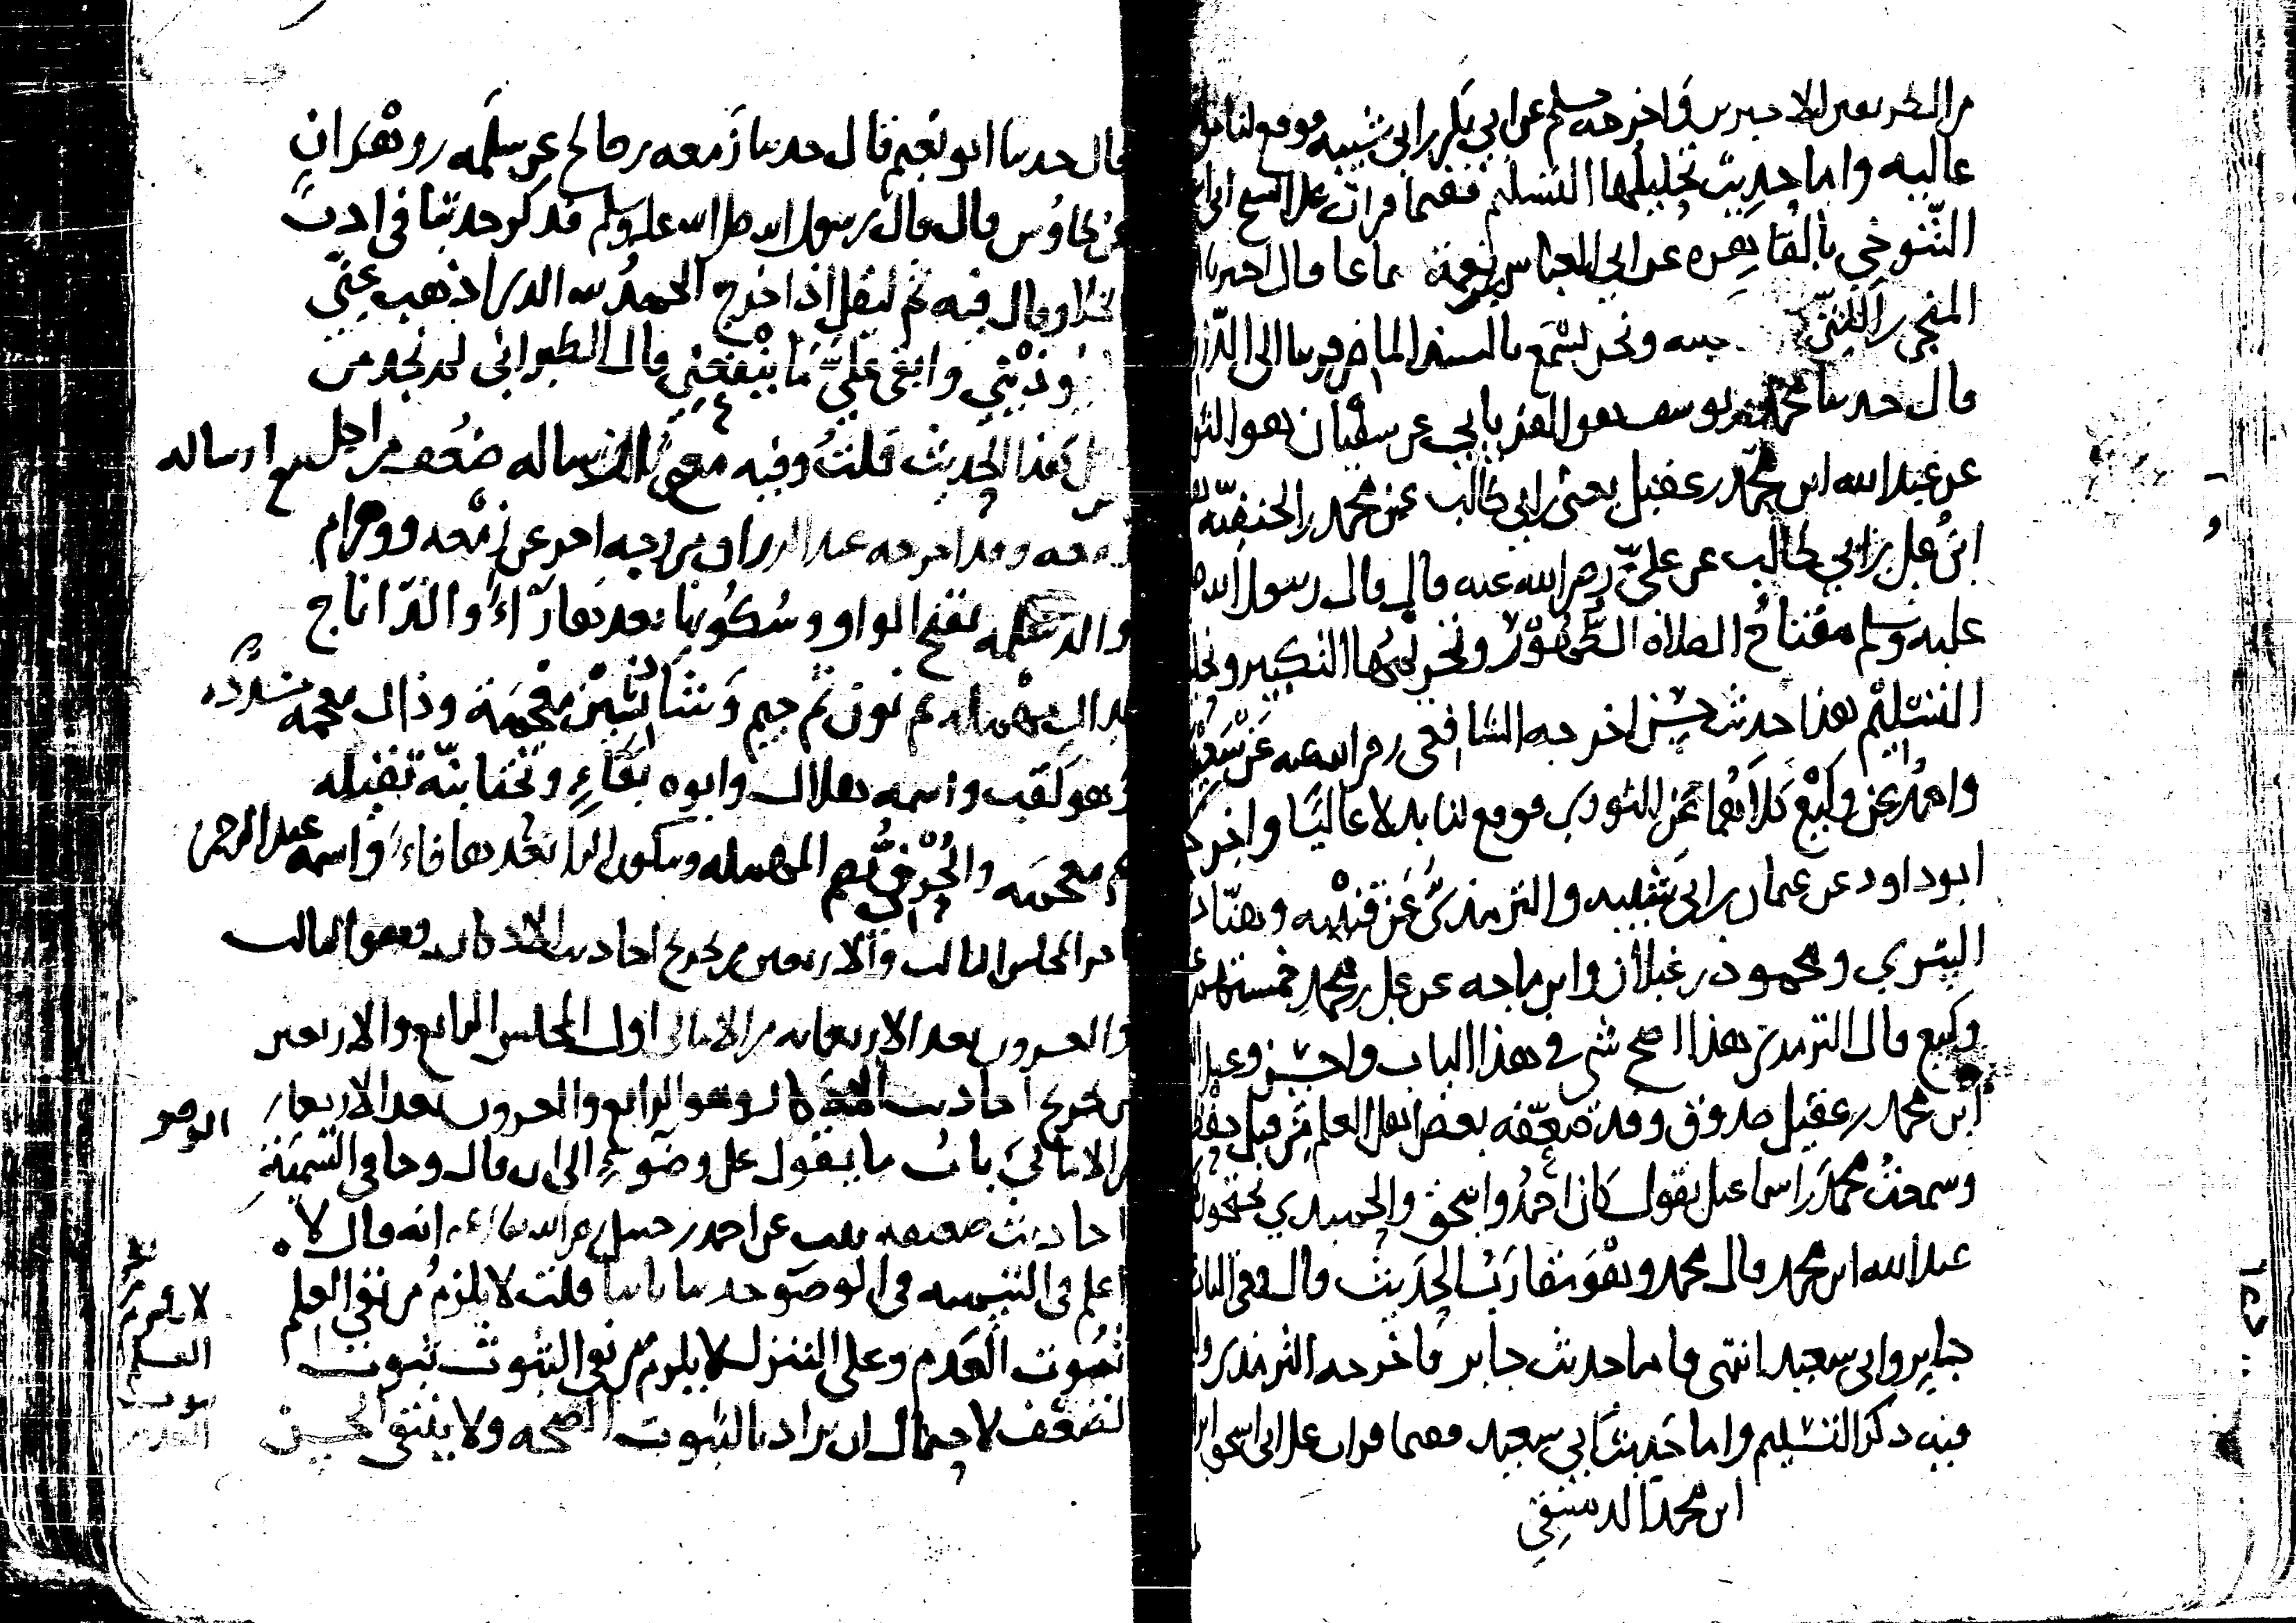 من الطريقين الاخيرين فاخرجه مسلم عن ابي بكر بن ابي شيبة فوقع لنا
عاليه واما حديث تحليلها التسليم ففيما قرات على الشيخ ابي
التنوخي بالقاهره عن ابي العباس بن نعمة سماعا قال اخبرنا
المنجى بن اللتي ونحن نسمع بالسند الماضي قريبا الى
قال حدثنا محمد بن يوسف هو الفريابي عن سفيان هو
عن عبد الله ابن محمد بن عقيل يعني بن ابي طالب عن محمد بن الحنفيّه
ابن علي بن ابي طالب عن عليّ رضي الله عنه قال قال رسول الله
عليه وسلم مفتاح الصلاه الطُّهُوْر وتحريمُها التكبير
التسليم هذا حديث حسن اخرجه الشافعي رضي الله عنه عن
واحمد عن وكيع كلاهما عن الثوري فوقع لنا بدلا عاليًا
ابو داود عن عثمان بن ابي شيبه والترمذيّ عن قتيبه وهنّاد
السري ومحمود بن غيلان وابن ماجه عن علي بن محمد خمستهم
وكيع قال الترمذي هذا اصح شي في هذا الباب واحسن
ابن محمد بن عقيل صدوق وقد ضعّفه بعض اهل العلم من قبل
وسمعتُ محمدَ بن اسماعيل يقول كان احمدُ واسحق والحميدي يحتجون
عبد الله ابن محمد قال محمد وهْوَ مقارَبُ الحديث قال وفي الباب
جابر وابي سعيد انتهى فاما حديث جابر فاخرجه الترمذي
فيه ذكر التسليم واما حديث ابي سعيد ففيما قرات على ابي اسحق
ابن محمد الدمشقي
قال حدثنا ابو نعيم قال حدثنا زمعه بن صالح عن سلمه بن وهرام
عن طاوس قال قال رسول الله صلى الله عليه وسلم فذكر حديثا في ادب
الخلا وقال فيه ثم ليقل اذا خرج الحمد لله الذي اذهب عني
ما يُؤذيني وابقى عليّ ما ينفعني قال الطبراني لم نجد من
هذا الحديث قلتُ وفيه مع ارساله ضعف من اجل
زمعه وقد اخرجه عبد الرزاق من وجه اخر عن زمعه ووهرام
والد سلمه بفتح الواو وسُكُون بعدها رآء والدّاناج
بدال مهمله ثم نون ثم جيم بشين معجمة وذال معجمه مشدده
وهو لقب واسمه هلال وابوه بفاء وتحتانيّه ثقيله
معجمه والجُرْفي بضم المهمله وسكون الرا بعدها فاء واسمه عبد الرحمن
اخر المجلس الثالث والاربعين من تخريج احاديث الاذكار وهو الثالث
والعشرون بعد الاربعمايه من الامالي اول المجلس الرابع والاربعين
من تخريج احاديث الاذكار وهو الرابع والعشرون بعد الاربعمايه
من الامالي باب ما يقول على وضوئه الى ان قال وجا في التسمية
احاديث ضعيفه ثبت عن احمد بن حنبل رضي الله تعالى عنه انه قال لا
اعلم في التسميه في الوضوء حديثا ثابتا قلت لا يلزم من نفي العلم
ثبوت العدم وعلى التنزل لا يلزم من نفي الثبوت ثبوت
الضعف لاحتمال ان يراد بالثبوت الصحه ولا ينتفي الحسن
الوضو
لا يلزم من نفي
العلم
ثبوت
العدم